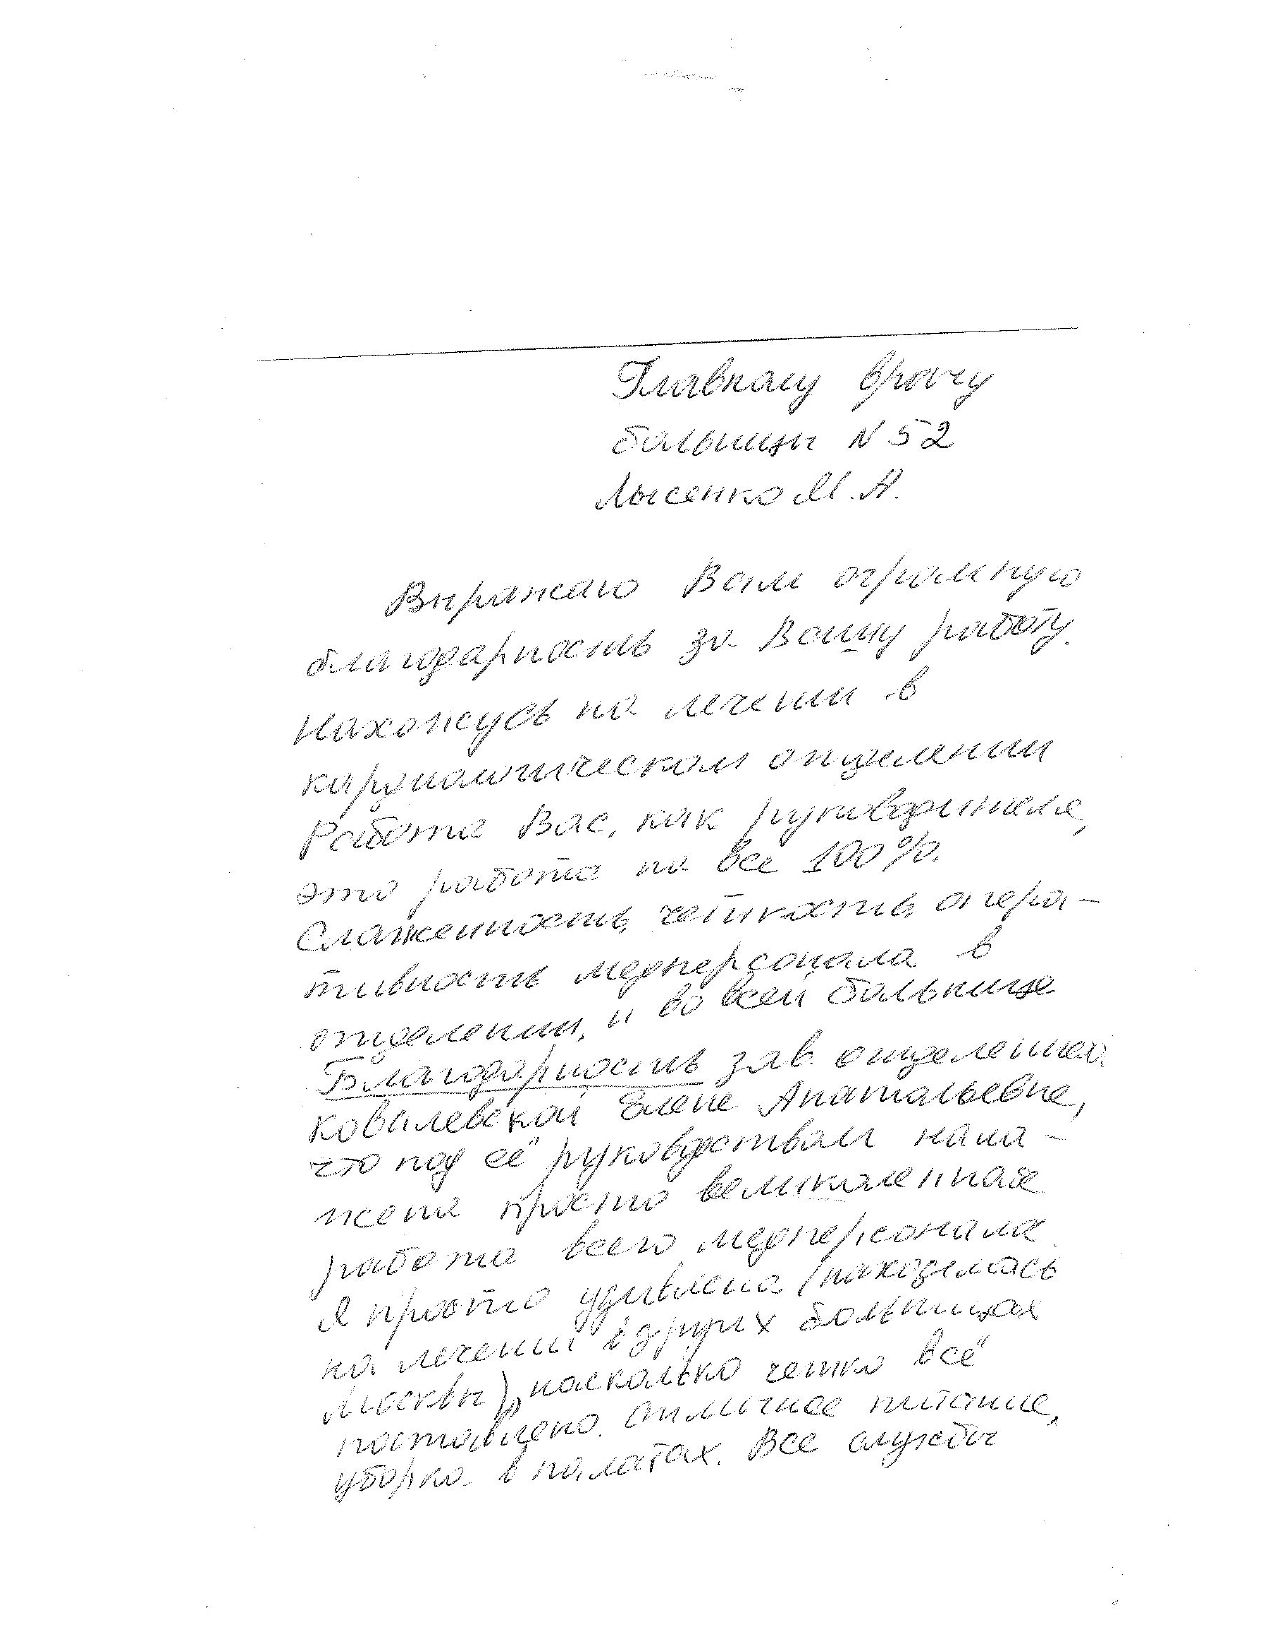 Главному врачу
больницы N 52
Лысенко М.А.
Выражаю Вам огромную
благодарность за Вашу работу.
Нахожусь на лечении в
кардиологическом отделении
Работа Вас, как руководителя,
это работа на все 100%.
Слаженность, четкость, опера-
тивность медперсонала в
отделении, и во всей больнице
Благодарность зав. отделением
Ковалевской Елене Анатольевне,
что под её руководством нала-
жена просто великолепная
работа всего медперсонала
Я просто удивлена (находилась
на лечении в других больницах
Москвы), насколько четко всё
поставлено. Отличное питание,
уборка в палатах. Все службы